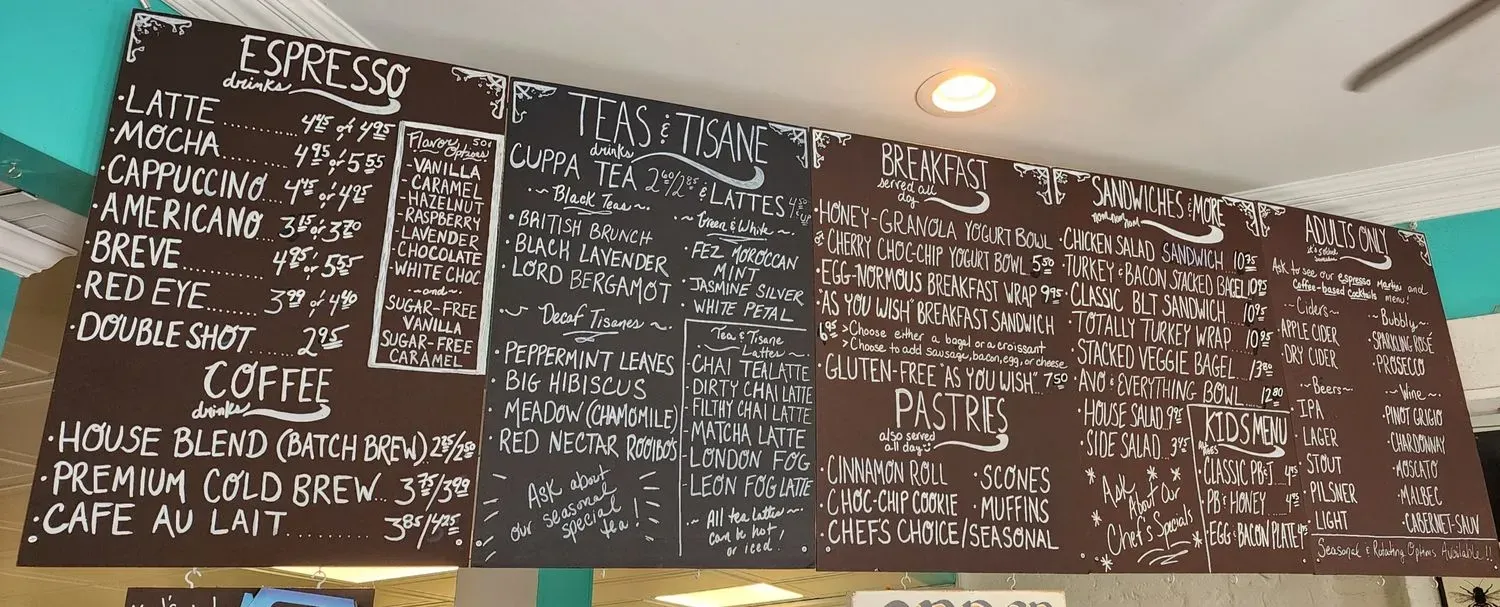 ESPRESSO
drinks
·LATTE ........ 4.45 or 4.95
·MOCHA ........ 4.95 or 5.55
·CAPPUCCINO .. 4.45 or 4.95
·AMERICANO ... 3.15 or 3.70
·BREVE ........ 4.95 or 5.55
·RED EYE ....... 3.99 or 4.40
·DOUBLE SHOT ..... 2.95
Flavor .50¢
Options
-VANILLA
-CARAMEL
-HAZELNUT
-RASPBERRY
-LAVENDER
-CHOCOLATE
-WHITE CHOC.
~and~
SUGAR-FREE
VANILLA
SUGAR-FREE
CARAMEL
COFFEE
drinks
·HOUSE BLEND (BATCH BREW)
·PREMIUM COLD BREW... 3.75/3.99
·CAFE AU LAIT ......... 3.85/4.25
TEAS & TISANE
drinks
CUPPA TEA 2.60/2.85 & LATTES
~Black Teas~
·BRITISH BRUNCH
·BLACH LAVENDER
·LORD BERGAMOT
~Green & White~
·FEZ MOROCCAN
MINT
·JASMINE SILVER
·WHITE PETAL
~Decaf Tisanes~
·PEPPERMINT LEAVES
·BIG HIBISCUS
·MEADOW (CHAMOMILE)
·RED NECTAR ROOIBOS
Ask about
our seasonal
special
tea!
Tea & Tisane
~Lattes~
·CHAI TEA LATTE
·DIRTY CHAI LATTE
·FILTHY CHAI LATTE
·MATCHA LATTE
·LONDON FOG
·LEON FOG LATTE
~All tea lattes~
can be hot
or iced!
BREAKFAST
served all
day
·HONEY-GRANOLA YOGURT BOWL
or CHERRY CHOC-CHIP YOGURT BOWL 5.50
·EGG-NORMOUS BREAKFAST WRAP 9.95
·"AS YOU WISH" BREAKFAST SANDWICH
6.95 >Choose either a bagel or a croissant
>Choose to add sausage, bacon, egg, or cheese
·GLUTEN-FREE "AS YOU WISH" 7.50
PASTRIES
also served
all day :)
·CINNAMON ROLL
·CHOC-CHIP COOKIE
·CHEF'S CHOICE/SEASONAL
·SCONES
·MUFFINS
SANDWICHES & MORE
nom nom nom
·CHICKEN SALAD SANDWICH 10.75
·TURKEY & BACON STACKED BAGEL 10.95
·CLASSIC BLT SANDWICH 10.95
·TOTALLY TURKEY WRAP .. 10.95
·STACKED VEGGIE BAGEL .. 13.80
·AVO & EVERYTHING BOWL.. 12.80
·HOUSE SALAD 9.95
·SIDE SALAD .. 3.45
Ask
About Our
Chef's Specials
KIDS MENU
·CLASSIC PB&J
·PB & HONEY
·EGG & BACON PLATE
ADULTS ONLY
it's 5 o'clock somewhere
Ask to see our espresso Martini and
Coffee-based Cocktails menu!
~Ciders~
APPLE CIDER
DRY CIDER
~Beers~
IPA
LAGER
STOUT
PILSNER
LIGHT
~Bubbly~
·SPARKLING ROSE
·PROSECCO
~Wine~
·PINOT GRIGIO
·CHARDONNAY
·MOSCATO
·MALBEC
·CABERNET-SAUV
Seasonal & Rotating Options Available!!